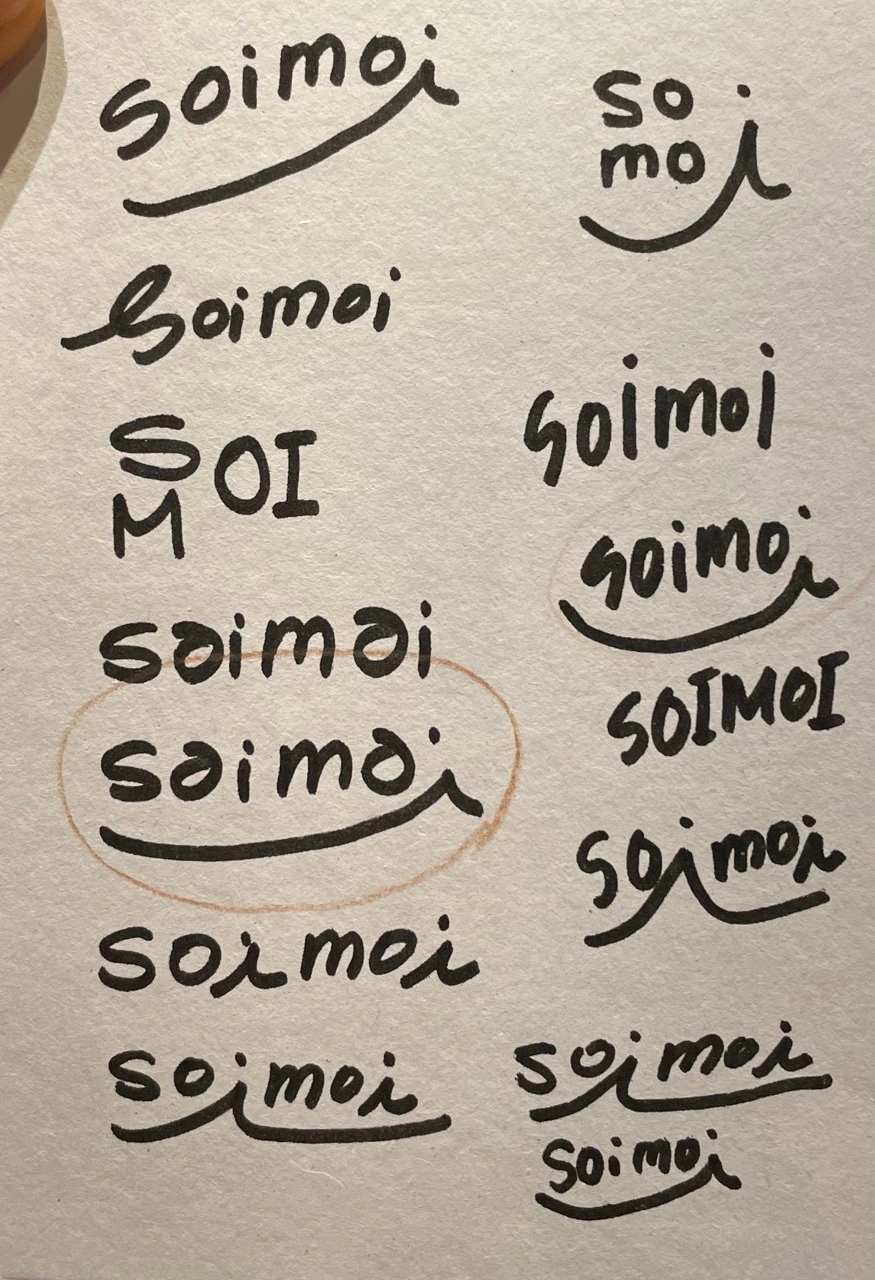 soimoi
soimoi
S OI
M
soimoi
soimoi
soimoi
soimoi
so
moi
soimoi
soimoi
SOIMOI
soimoi
soimoi
soimoi